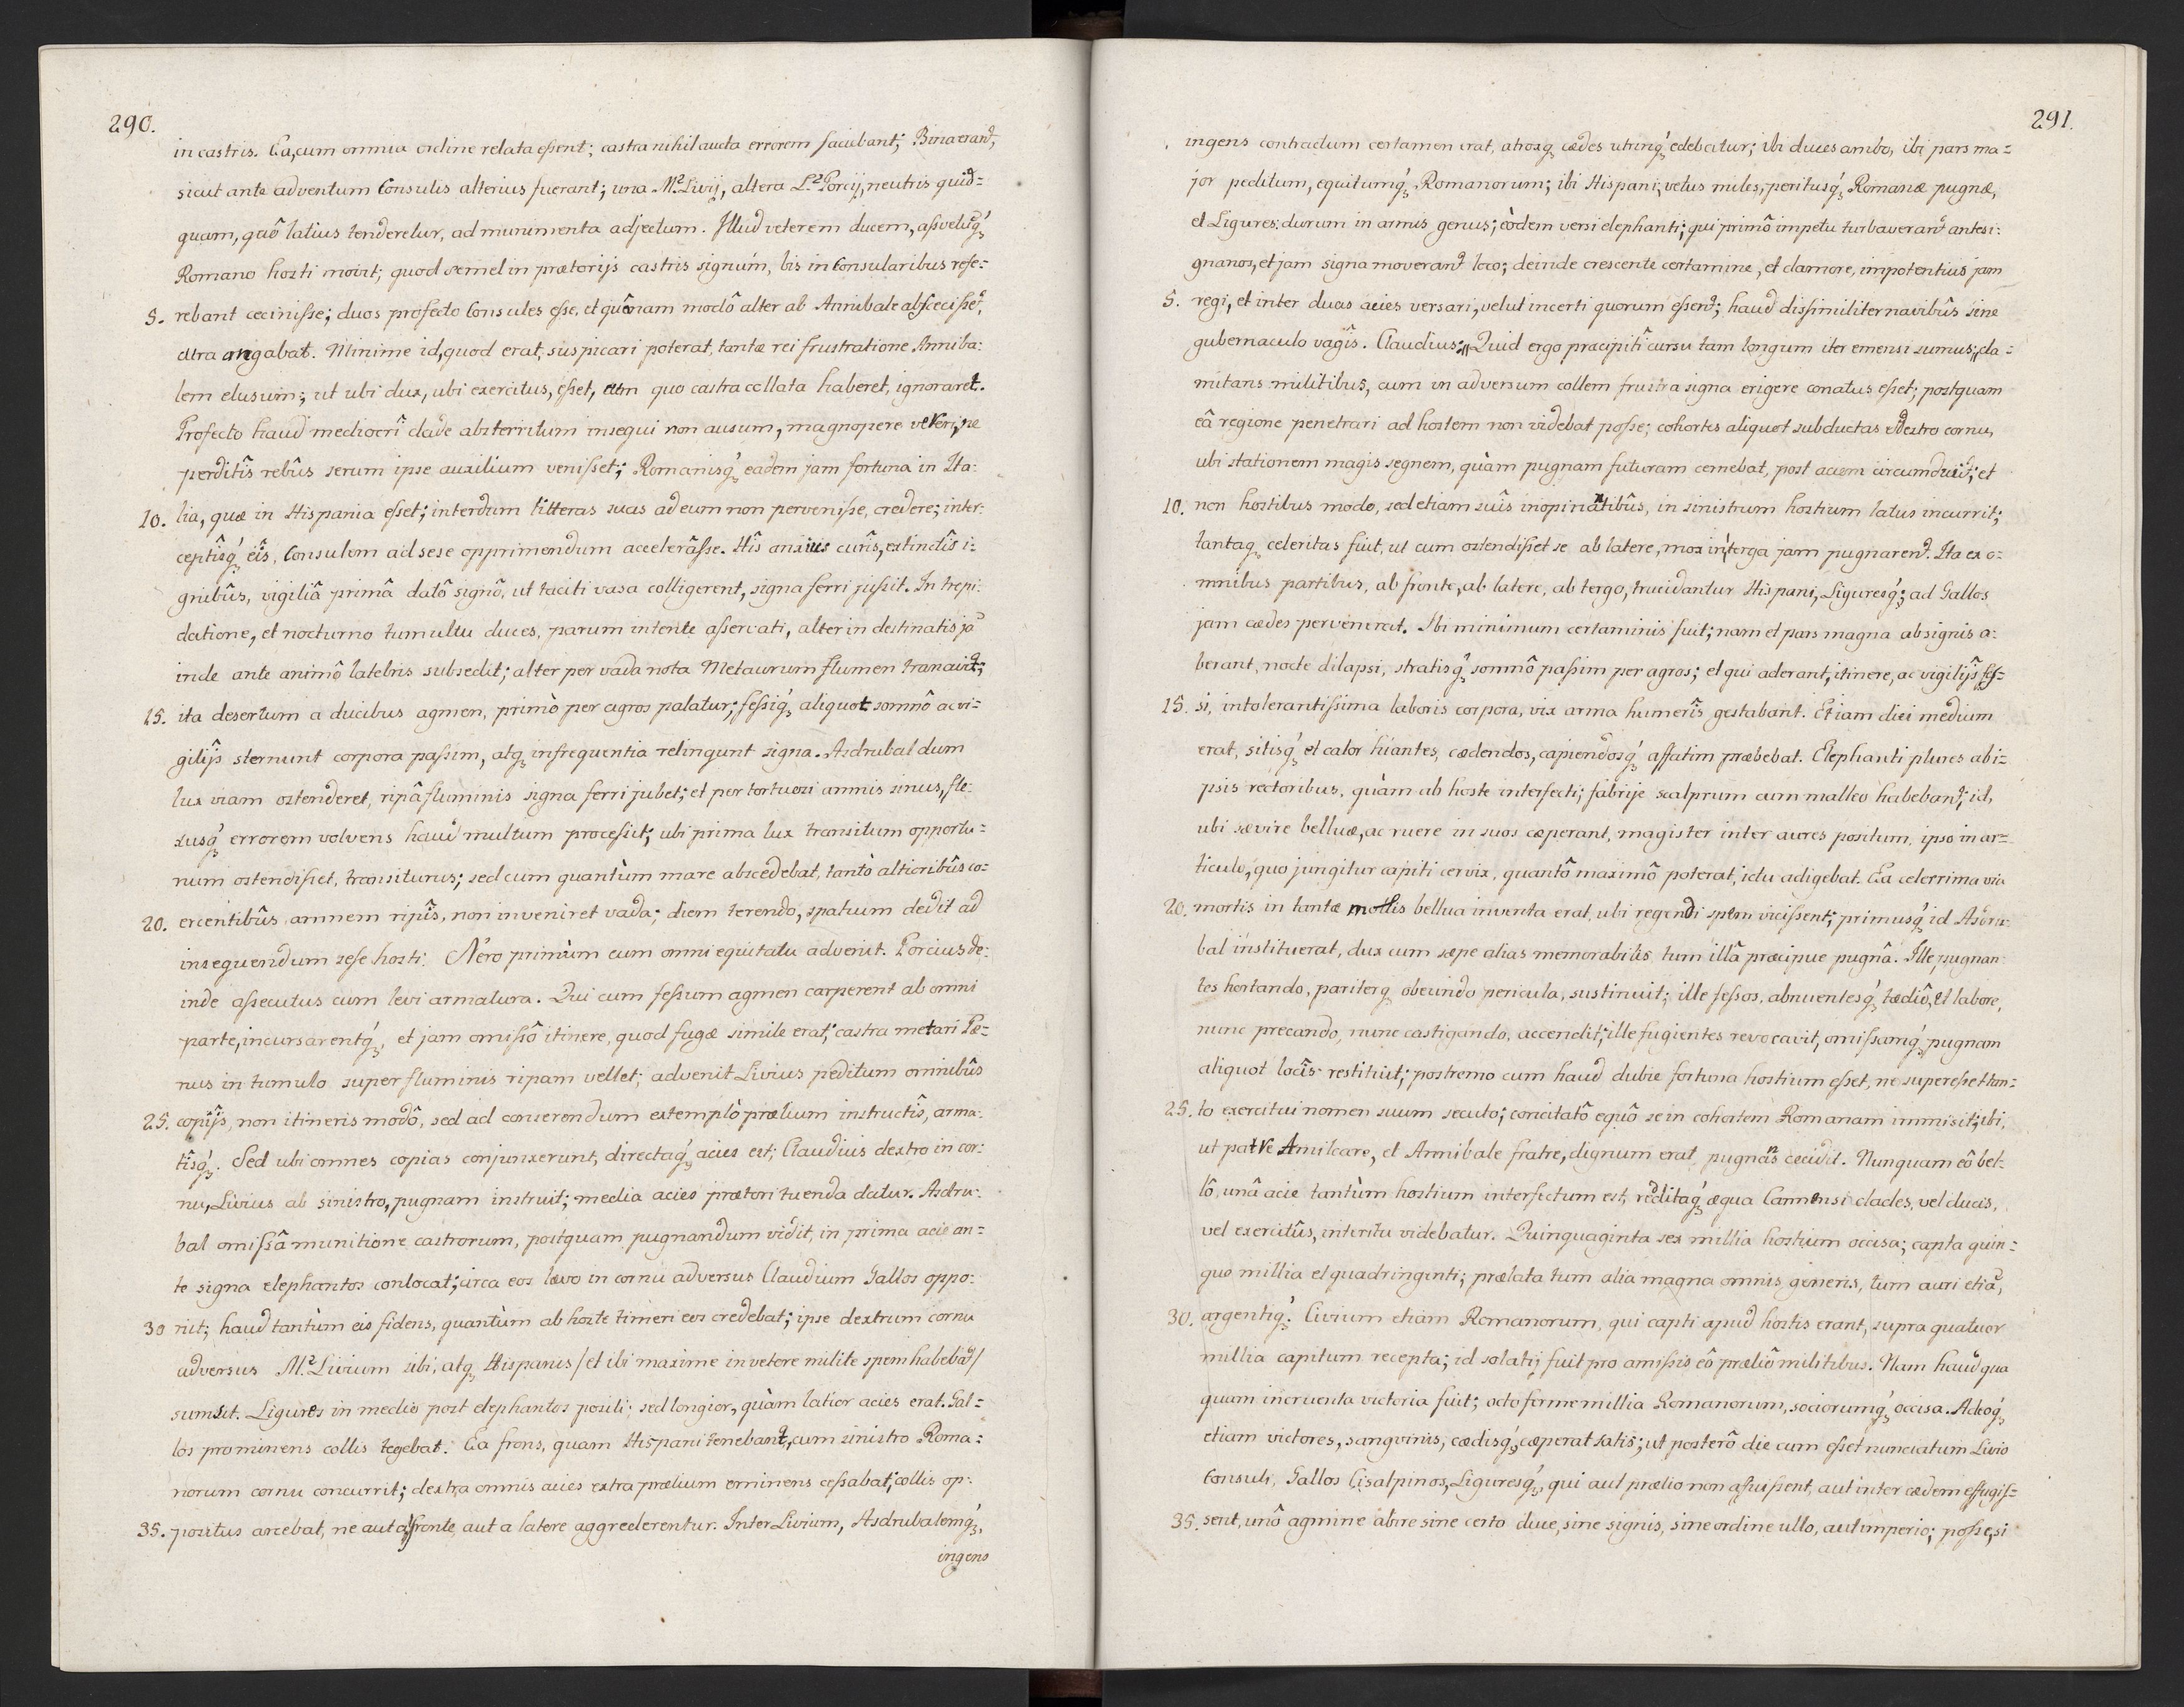 290.
in castris. Ea, cum omnia ordine relata essent; castra nihil aucta errorem faciebant; Bina erant,
sicut ante adventum Consulis alterius fuerant; una M.² Livij, altera L.² Porcij, neutris quid=
quam, quô latius tenderetur, ad munimenta adjectum. Illud veterem ducem, assvetuq́
Romano hosti movit; quod semel in prætorijs castris signum, bis in Consularibus refe=
5. rebant cecinisse; duos profecto Consules esse, et quônam modô alter ab Annibale abscecisset,
cura angabat. Minime id, quod erat, suspicari poterat, tantæ rei frustratione Anniba:
lem elusum; ut ubi dux, ubi exercitus, esset, cum quo castra collata haberet, ignoraret.
Profecto haud mediocrî clade absterritum insequi non ausum, magnopere vereri, ne
perditîs rebûs serum ipse auxilium venisset; Romanisq́ eadem jam fortuna in Ita:
10. lia, quæ in Hispania esset; interdum litteras suas ad eum non pervenisse, credere; inter:
ceptîsq́ eîs, Consulem ad sese opprimendum accelerâsse. Hîs anxius curîs, extinctîs i:
gnibûs, vigiliâ primâ datô signô, ut taciti vasa colligerent, signa ferri jussit. In trepi:
datione, et nocturno tumultu duces, parum intente asservati, alter in destinatis jã
inde ante animô latebris subsedit; alter per vada nota Metaurum flumen tranavit;
15. ita desertum a ducibus agmen, primò per agros palatur; fessiq́ aliquot somnô ac vi=
gilijs sternunt corpora passim, atq infrequentia relinqunt signa. Asdrubal dum
lux viam ostenderet, ripâ fluminis signa ferri jubet; et per tortuosi amnis sinus, fle:
xusq́ errorem volvens haud multum processit; ubi prima lux transitum opportu=
num ostendisset, transiturus; sed cum quantùm mare abscedebat, tantò altioribûs co=
20. ercentibûs amnem ripîs, non inveniret vada; diem terendo, spatium dedit ad
insequendum sese hosti. Nero primùm cum omni equitatu advenit. Porcius de:
inde assecutus cum levi armatura. Qui cum fessum agmen carperent ab omni
parte, incursarentq́, et jam omissô itinere, quod fugæ simile erat; castra metari Pæ=
nus in tumulo super fluminis ripam vellet; advenit Livius peditum omnibûs
25. copijs, non itineris modô, sed ad conserendum extemplò prælium instructîs, arma:
tîsq́. Sed ubi omnes copias conjunxerunt, directaq́ acies est; Claudius dextro in cor:
nu, Livius ab sinistro, pugnam instruit; media acies prætori tuenda datur. Asdru:
bal omissâ munitione castrorum, postquam pugnandum vidit, in prima acie an=
te signa elephantos conlocat; circa eos lævo in cornu adversus Claudium Gallos oppo:
30 nit; haud tantùm eis fidens, quantùm ab hoste timeri eos credebat; ipse dextrum cornu
adversus M.² Livium sibi, atq Hispanis / et ibi maxime in vetere milite spem habebat /
sumsit. Ligures in medio post elephantos positi; sed longior, quàm latior acies erat. Gal=
los prominens collis tegebat. Ea frons, quam Hispani tenebant, cum sinistro Roma=
norum cornu concurrit; dextra omnis acies extra prælium eminens cessabat; collis op:
35. positus arcebat, ne aut a fronte, aut a latere aggrederentur. Inter Livium, Asdrubalemq́,
ingens
291.
ingens contractum certamen erat, atroxq cædes utrinq́ edebatur; ibi duces ambo, ibi pars ma=
jor peditum, equitumq́ Romanorum; ibi Hispani, vetus miles, peritusq́ Romanæ pugnæ,
et Ligures, durum in armis genus; eòdem versi elephanti; qui primô impetu turbaverant antesi:
gnanos, et jam signa moverant loco; deinde crescente certamine, et clamore, impotentius jam
5. regi, et inter duas acies versari, velut incerti quorum essent; haud dissimiliter navibûs sine
gubernaculo vagîs. Claudius: „Quid ergo præcipitî cursu tam longum iter emensi sumus„ cla=
mitans militibus, cum in adversum collem frustra signa erigere conatus esset; postquam
eâ regione penetrari ad hostem non videbat posse; cohortes aliquot subductas e dextro cornu,
ubi stationem magis segnem, quàm pugnam futuram cernebat, post aciem circumducit; et
10. non hostibus modo, sed etiam suîs inopinantibûs, in sinistrum hostium latus incurrit;
tantaq celeritas fuit, ut cum ostendisset se ab latere, mox in terga jam pugnarent. Ita ex o=
mnibus partibus, ab fronte, ab latere, ab tergo, trucidantur Hispani, Liguresq́; ad Gallos
jam cædes pervenerat. Ibi minimum certaminis fuit; nam et pars magna ab signis a:
berant, nocte dilapsi, stratisq́ somnô passim per agros; et qui aderant, itinere, ac vigilijs fes=
15. si, intolerantissima laboris corpora, vix arma humerîs gestabant. Et jam diei medium
erat, sitisq́ et calor hiantes, cædendos, capiendosq́ affatim præbebat. Elephanti plures ab i=
psis rectoribus, quàm ab hoste interfecti; fabrije scalprum cum malleo habebant; id,
ubi sævire belluæ, ac ruere in suos cæperant, magister inter aures positum, ipso in ar=
ticulo, quo jungitur capiti cervix, quantô maximô poterat, ictu adigebat. Ea celerrima via
20. mortis in tantæ mollis bellua inventa erat, ubi regendi spem vicissent; primusq́ id Asdru:
bal instituerat, dux cum sæpe alias memorabilis, tum illâ præcipue pugnâ. Ille pugnan
tes hortando, pariterq obeundo pericula, sustinuit; ille fessos, abnuentesq́ tædiô, et labore,
nunc precando, nunc castigando, accendit; ille fugientes revocavit, omissamq́ pugnam
aliquot locîs restituit; postremo cum haud dubie fortuna hostium esset, ne superesset tan=
25. to exercitui nomen suum secuto; concitatô equô se in cohortem Romanam immisit; ibi,
ut patre Amilcare, et Annibale fratre, dignum erat, pugnans cecidit. Nunquam eô bel:
lô, unâ acie tantùm hostium interfectum est, redditaq́ æqua Cannensi clades, vel ducis,
vel exercitûs, interitu videbatur. Quinquaginta sex millia hostium occisa; capta quin=
que millia et quadringenti; prælata tum alia magna omnis generis, tum auri etiã,
30. argentiq́. Civium etiam Romanorum, qui capti apud hostis erant, supra quatuor
millia capitum recepta; id solatij fuit pro amissis eô præliô militibus. Nam haud qua
quam incruenta victoria fuit; octo ferme millia Romanorum, sociorumq́ occisa. Adeoq́
etiam victores, sangvinis, cædisq́ cæperat satis; ut posterô die cum esset nunciatum Livio
Consuli, Gallos Cisalpinos, Liguresq́, qui aut prælio non affuissent, aut inter cædem effugis=
35. sent, unô agmine abire sine certo duce, sine signis, sine ordine ullo, aut imperio; posse, si